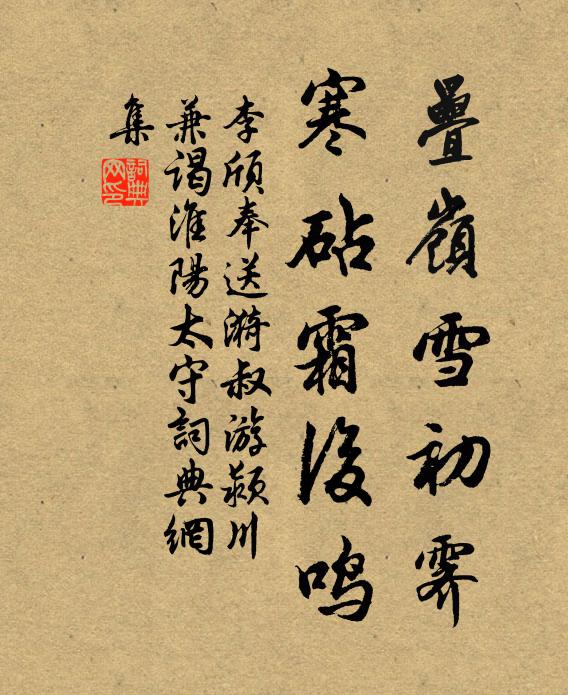 疊嶺雪初霽
寒砧霜後鳴
李頎奉送漪叔游颍川
兼谒淮陽太守詞典網
集
詞典网印